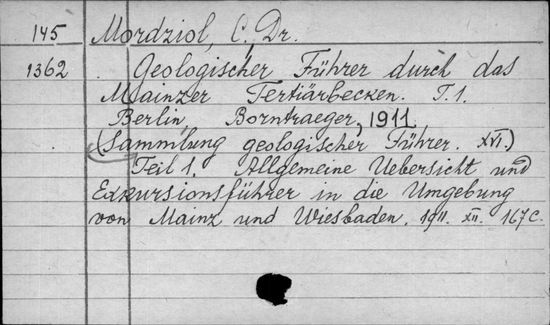 145 Mordziol, C, Dr.
1362 Geologischer Führer durch das
Mainzer Tertiärbecken. T. 1.
Berlin, Borntraeger, 1911.
(Sammlung geologischer Führer. XVI.)
Teil 1. Allgemeine Uebersicht und
Exkursionsführer in die Umgebung
von Mainz und Wiesbaden. 1911. XII. 167 C.